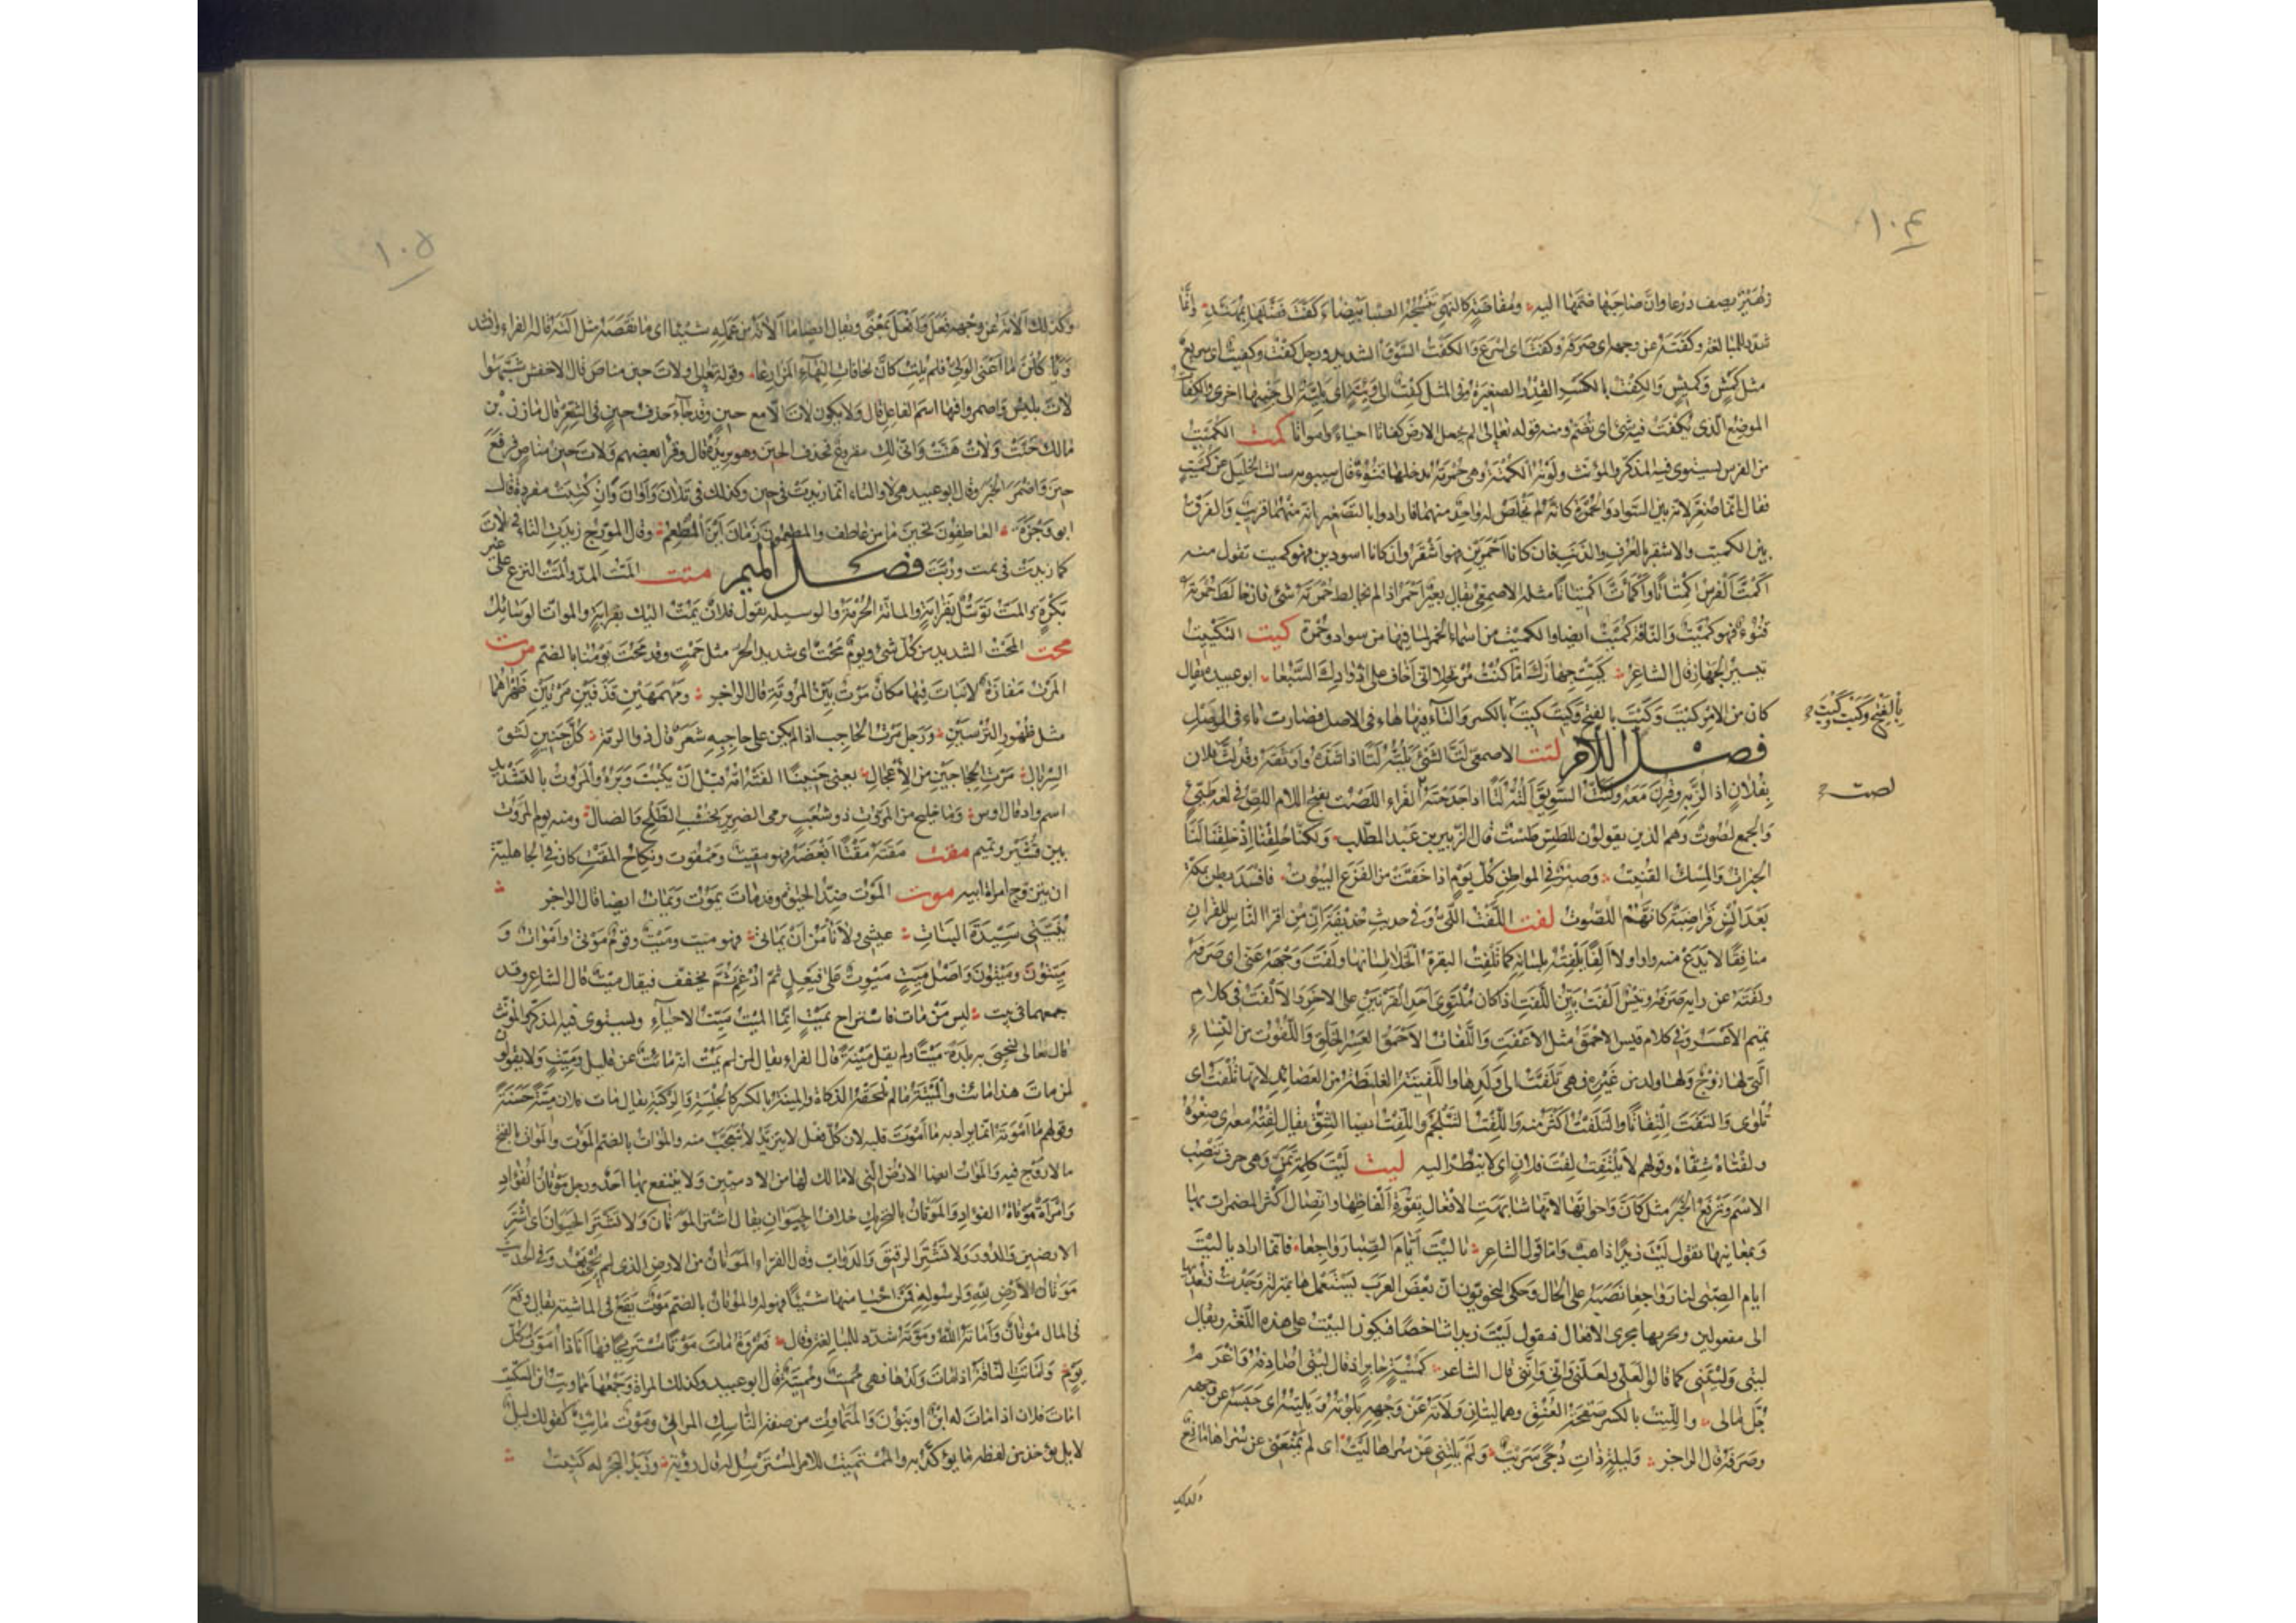 ١٠٤
زهير يصف درعا وان صاحبها ضمها اليه ومفاضة كالنهى تنسجه الصبا بيضاء كفت فضلها بمهند وانما
شدد للمبالغة وكفته عن وجهه اى صرفه وكفت اى اسرع والكفت السوق الشديد ورجل كفت وكفيت اى سريع
مثل كمش وكميش والكفت بالكسر القدر الصغيرة وفى المثل كفت الى وئية اى بلية الى جنبها اخرى والكفات
الموضع الذى يكفت فيه شئ اى يضم ومنه قوله تعالى الم نجعل الارض كفاتا احياء وامواتا كمت الكميت
من الفرس يستوى فيه المذكر والمؤنث ولونه الكمتة وهى حمرة يدخلها قنوء قال سيبويه سالت الخليل عن كميت
فقال انما صغر لانه بين السواد والحمرة كانه لم يخلص له واحد منهما فارادوا بالتصغير انه منهما قريب والفرق
بين الكميت والاشقر بالعرف والذنب فان كانا احمرين فهو اشقر وان كانا اسودين فهو كميت تقول منه
اكمت الفرس اكمتاتا واكمات اكميتاتا مثله الاصمعى يقال بعير احمر اذا لم يخالط حمرته شئ فان خالط حمرته
قنوء فهو كميت والناقة كميت ايضا والكميت من اسماء الخمر لما فيها من سواد وحمرة كيت التكييت
تيسير الجهاز قال الشاعر كيت جهازك اما كنت مرتحلا انى اخاف على اذوادك السبعا ابو عبيدة يقال
كان من الامر كيت وكيت بالفتح وكيت كيت بالكسر والتاء فيها هاء فى الاصل فصارت تاء فى الوصل
بالفتح وكيت وكيت
فصل اللام لتت الاصمعى لت الشئ يلته لتا اذا شده واوثقه وقد لت فلان
بفلان اذا لز به وقرن معه ولتت السويق التته لتا اذا جدحته الفراء اللصت بفتح اللام اللص فى لغة طيئ
لصت
والجمع لصوت وهم الذين يقولون للطس طست قال الزبير بن عبد المطلب ولكنا خلقنا اذ خلقنا لنا
الحبرات والمسك الفتيت وصبر فى المواطن كل يوم اذا خفت من الفزع البيوت فافسد بطن مكة
بعد انس قراضبة كانهم اللصوت لفت اللفت اللى وفى حديث حذيفة ان من اقرا الناس للقران
منافقا لا يدع منه واوا ولا الفا يلفته بلسانه كما تلفت البقرة الخلا بلسانها ولفت وجهه عنى اى صرفه
ولفته عن رايه صرفه وتيس الفت بين اللفت اذا كان ملتوى احد القرنين على الاخر والالفت فى كلام
تميم الاعسر وفى كلام قيس الاحمق مثل الاعفت واللفات الاحمق العسر الخلق واللفوت من النساء
التى لها زوج ولها ولد من غيره فهى تلفت الى ولدها واللفيتة الغليظة من العصائد لانها تلفت اى
تلوى والتفت التفاتا والتلفت اكثر منه واللفت السلجم واللفت ايضا الشق يقال لفته معه اى صغوه
ولفتاه شقاه وقولهم لا يلتفت لفت فلان اى لا ينظر اليه ليت ليت كلمة تمن وهى حرف تنصب
الاسم وترفع الخبر مثل كان واخواتها لانها شابهت الافعال بقوة الفاظها واتصال اكثر المضمرات بها
وبمعانيها تقول ليت زيدا ذاهب واما قول الشاعر يا ليت ايام الصبا رواجعا فانما اراد يا ليت
ايام الصبى لنا رواجعا نصبه على الحال وحكى النحويون ان بعض العرب يستعملها بمنزلة وجدت فيعديها
الى مفعولين ويجريها مجرى الافعال فيقول ليت زيدا شاخصا فيكون البيت على هذه اللغة ويقال
ليتى وليتنى كما قالوا لعلى ولعلنى وانى واننى قال الشاعر كمنية جابر اذ قال ليتى اصادفه واغرم
جل مالى والليت بالكسر صفحة العنق وهما ليتان ولاته عن وجهه يلوته ويليته اى حبسه عن وجهه
وصرفه قال الراجز وليلة ذات دجى سريت ولم يلتنى عن سراها ليت اى لم يمنعنى عن سراها مانع
وكذلك
١٠٥
وكذلك الاته عن وجهه فعل وافعل بمعنى ويقال ايضا ما الاته من عمله شيئا اى ما نقصه مثل التة قاله الفراء وانشد
وقوله تعالى ولات حين مناص قال الاخفش شبهوا
لات بليس واضمروا فيها اسم الفاعل قال ولا يكون لات الا مع حين وقد جاء حذف حين فى الشعر قال مازن بن
مالك حنت ولات هنت وانى لك مقروع فحذف الحين وهو يريده قال وقرا بعضهم ولات حين مناص فرفع
حين واضمر الخبر وقال ابو عبيد هى لا والتاء انما زيدت فى حين وكذلك فى تلان واوان وان كتبت مفردة قال
ابو وجزة العاطفون تحين ما من عاطف والمطعمون زمان اين المطعم وقال المورج زيدت التاء فى لات
كما زيدت فى ثمت وربت فصل الميم متت المت المد والمت النزع على غير
بكرة والمت توسل بقرابة والماتة الحرمة والوسيلة يقول فلان يمت اليك بقرابة والموات الوسائل
محت المحت الشديد من كل شئ ويوم محت اى شديد الحر مثل حمت وقد محت يومنا بالضم مرت
المرت مفازة لا نبات فيها مكان مرت بين المروتة قال الراجز ومهمهين قذفين مرتين ظهراهما
مثل ظهور الترسين ورجل مرت الحاجب اذا لم يكن على حاجبه شعر قال ذو الرمة كل جنين لثق
السربال مرت الحجاجين من الاعجال يعنى جنينا القته امه قبل ان ينبت وبره والمروت بالتشديد
اسم واد قال اوس وما خليج من المروت ذو شعب يرمى الضرير بخشب الطلح والضال ومنه يوم المروت
بين قشير وتميم مقت مقته مقتا ابغضه فهو مقيت وممقوت ونكاح المقت كان فى الجاهلية
ان يتزوج امراة ابيه موت الموت ضد الحيوة وقد مات يموت ويمات ايضا قال الراجز
بنيتى سيدة البنات عيشى ولا نامن ان تماتى فهو ميت وميت وقوم موتى واموات و
ميتون وميتون واصل ميت ميوت على فيعل ثم ادغم ثم يخفف فيقال ميت قال الشاعر وقد
جمعهما فى بيت ليس من مات فاستراح بميت انما الميت ميت الاحياء ويستوى فيه المذكر والمؤنث
قال تعالى لنحيى به بلدة ميتا ولم يقل ميتة قال الفراء يقال لمن لم يمت انه مائت عن قليل وميت ولا يقولون
لمن مات هذا مائت والميتة ما لم تلحقه الذكاة والميتة بالكسر كالجلسة والركبة يقال مات فلان ميتة حسنة
وقولهم ما اموته انما يراد به ما اموت قلبه لان كل فعل لا يتزيد لا يتعجب منه والموات بالضم الموت والموات بالفتح
ما لا روح فيه والموات ايضا الارض التى لا مالك لها من الادميين ولا ينتفع بها احد ورجل موتان الفؤاد
وامراة موتانة الفؤاد والموتان بالتحريك خلاف الحيوان يقال اشتر الموتان ولا تشتر الحيوان اى اشتر
الارضين والدور ولا تشتر الرقيق والدواب وقال الفراء الموتان من الارض الذى لم يحى بعد وفى الحديث
موتان الارض لله ولرسوله فمن احيا منها شيئا فهو له والموتان بالضم موت يقع فى الماشية يقال وقع
فى المال موتان واماته الله وموته شدد للمبالغة وقال فعروة مات موتا مستريحا فها انا ذا اموت كل
يوم واماتت الناقة اذا مات ولدها فهى مميت ومميتة قال ابو عبيد وكذلك المراة وجمعها مماويت ابن السكيت
امات فلان اذا مات له ابن او بنون والمتماوت من صفة الناسك المرائى وموت مائت كقولك ليل
لايل يؤخذ من لفظه ما يؤكد به والمستميت للامر المسترسل له قال رؤبة وزبد البحر له كتيت